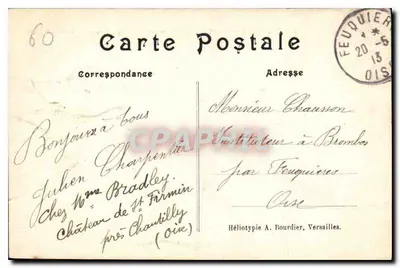 60
Carte Postale
Correspondance
Adresse
FEUQUIER
20 -5
13
OIS
Bonjours à tous
Julien Charpentier
chez Mme Bradley.
Château de St Firmin
près Chantilly
(Oise)
Monsieur Chausson
Instituteur à Brombos
par Feuquières
Oise
Héliotypie A. Bourdier, Versailles.